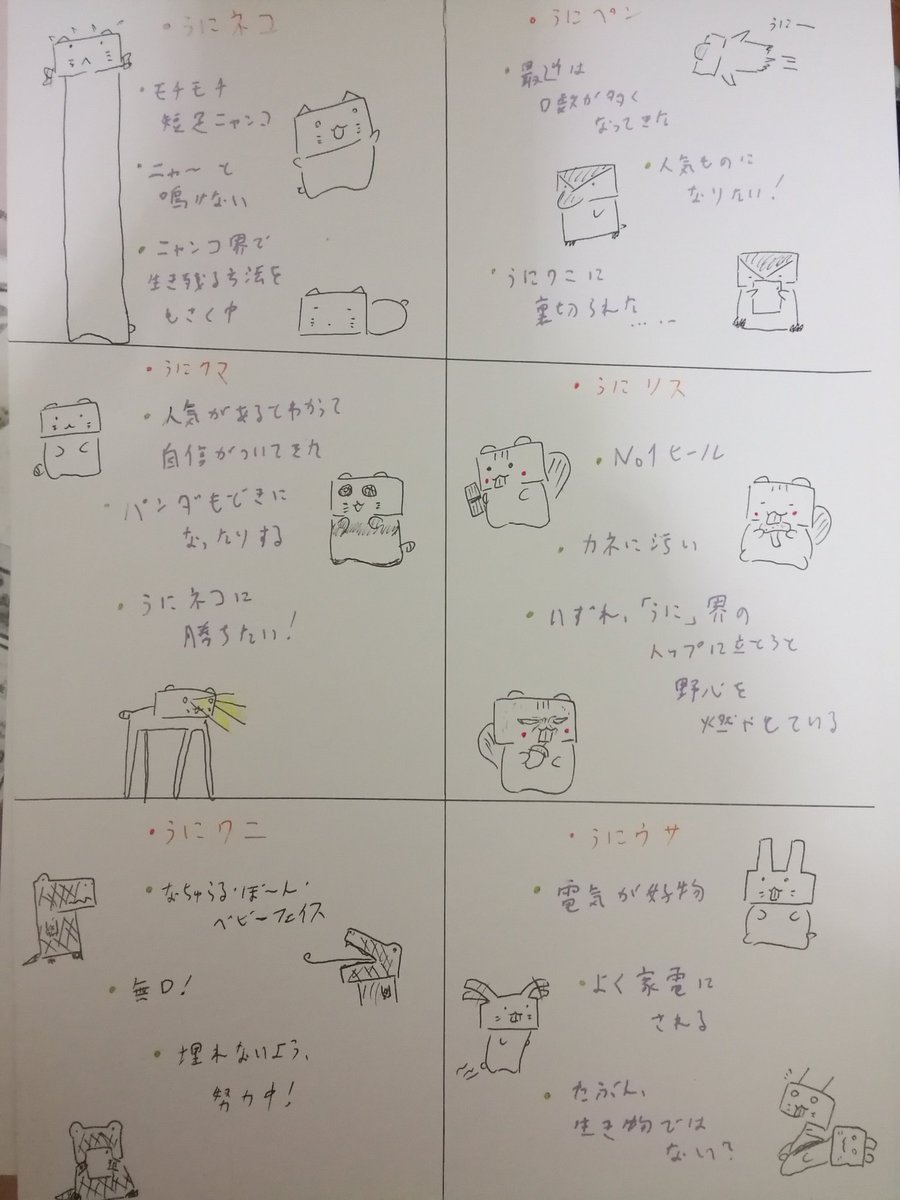 ・うにネコ
・モチモチ
短足ニャンコ
・ニャ〜と
鳴けない
・ニャンコ界で
生き残る方法を
もさく中
・うにペン
うにー
・最近は
口数が多く
なってきた
・人気ものに
なりたい!
・うにワニに
裏切られた……
・うにクマ
・人気があるとわかって
自信がついてきた
・パンダもどきに
なったりする
・うにネコに
勝ちたい!
・うにリス
・No1ヒール
・カネに汚い
・いずれ、「うに」界の
トップに立とうと
野心を
燃やしている
・うにワニ
・なちゅらる・ぼーん・
ベビーフェイス
・無口!
・埋れないよう、
努力中!
・うにウサ
・電気が好物
・よく家電に
される
・たぶん、
生き物では
ない?